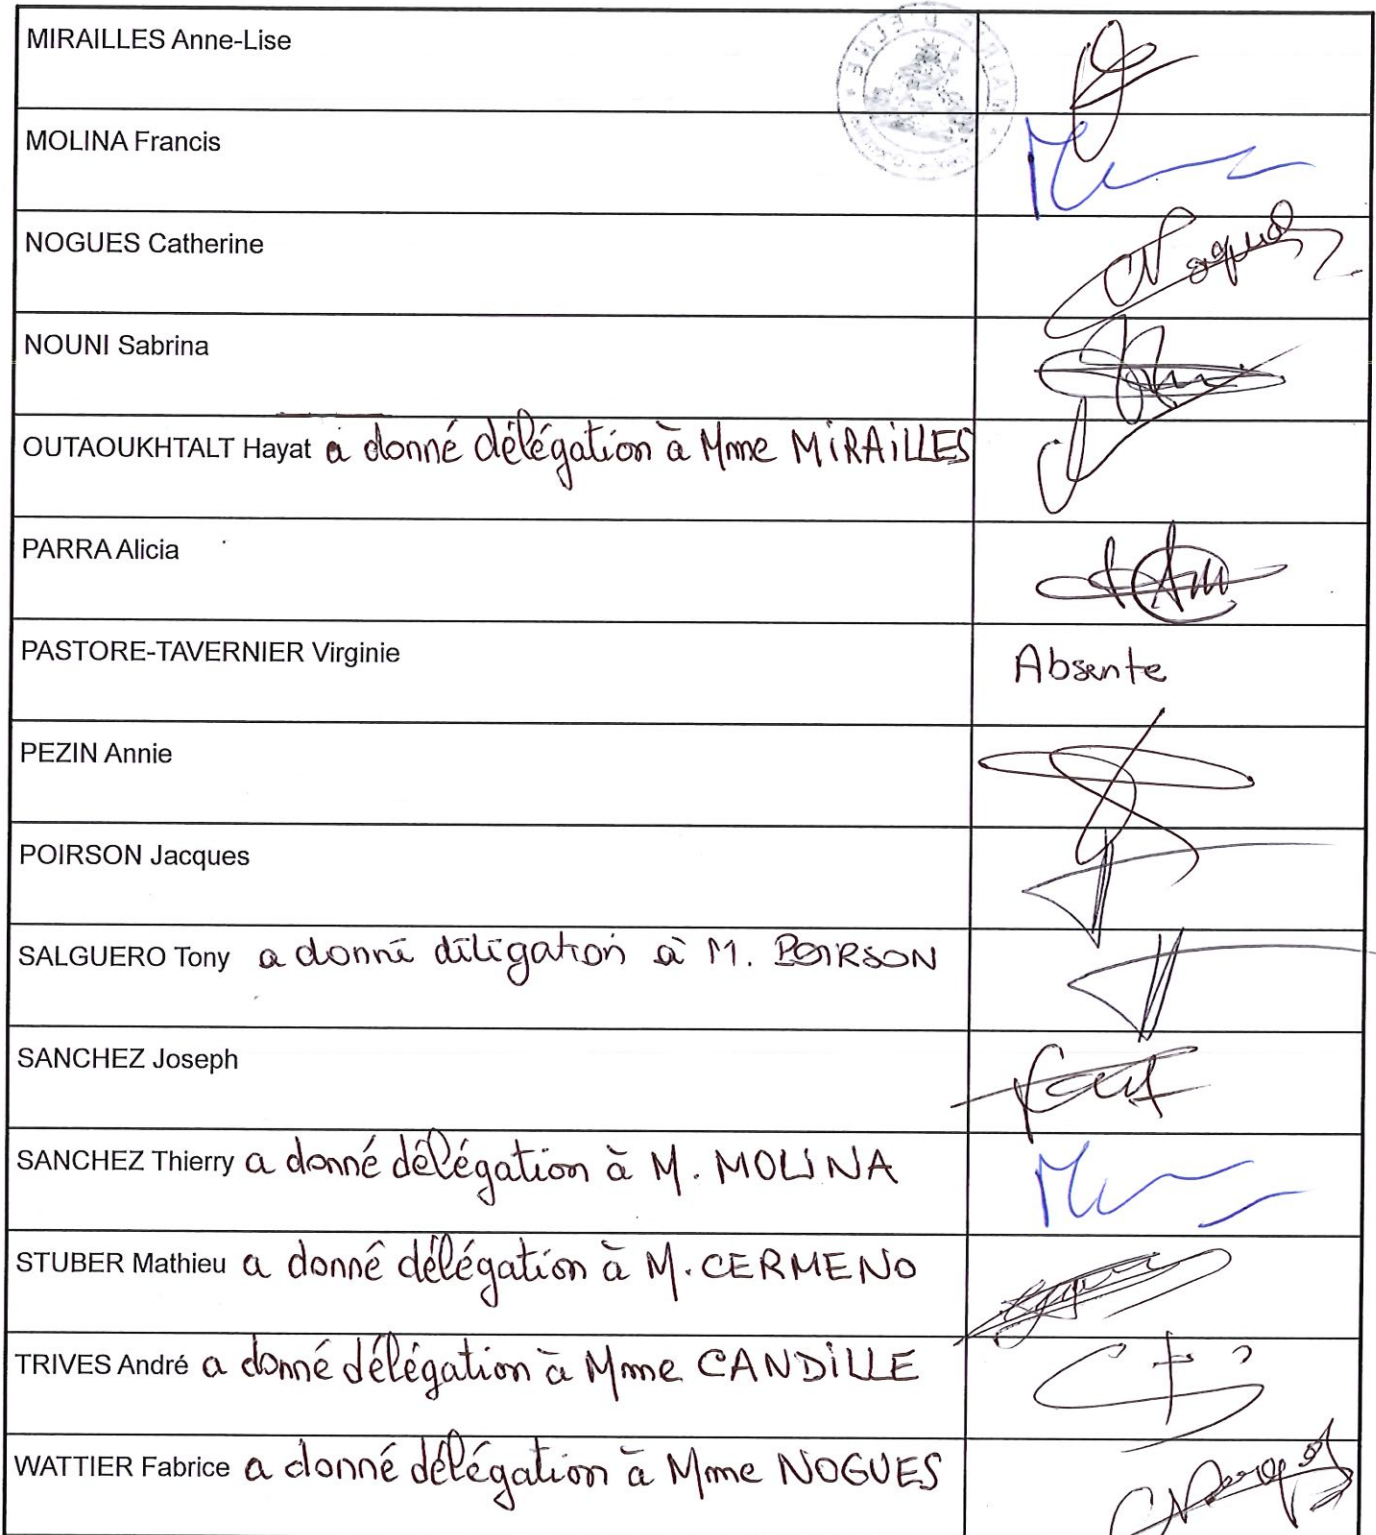 MIRAILLES Anne-Lise
MOLINA Francis
NOGUES Catherine
NOUNI Sabrina
OUTAOUKHTALT Hayat a donné délégation à Mme MIRAILLES
PARRA Alicia
PASTORE-TAVERNIER Virginie Absente
PEZIN Annie
POIRSON Jacques
SALGUERO Tony a donné délégation à M. POIRSON
SANCHEZ Joseph
SANCHEZ Thierry a donné délégation à M. MOLINA
STUBER Mathieu a donné délégation à M. CERMENO
TRIVES André a donné délégation à Mme CANDILLE
WATTIER Fabrice a donné délégation à Mme NOGUES